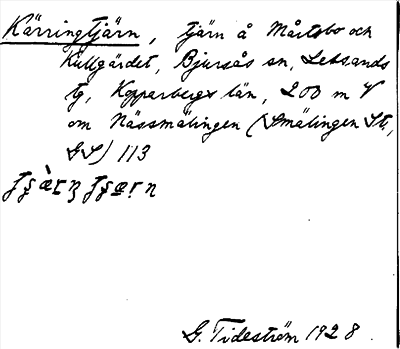 Kärringtjärn, tjärn å Mårtsbo och
Kullgärdet, Bjursås sn, Leksands
tg, Kopparbergs län, 200 m V
om Nässmälingen (Smälingen St.,
SS) 113
G. Tideström 1928.